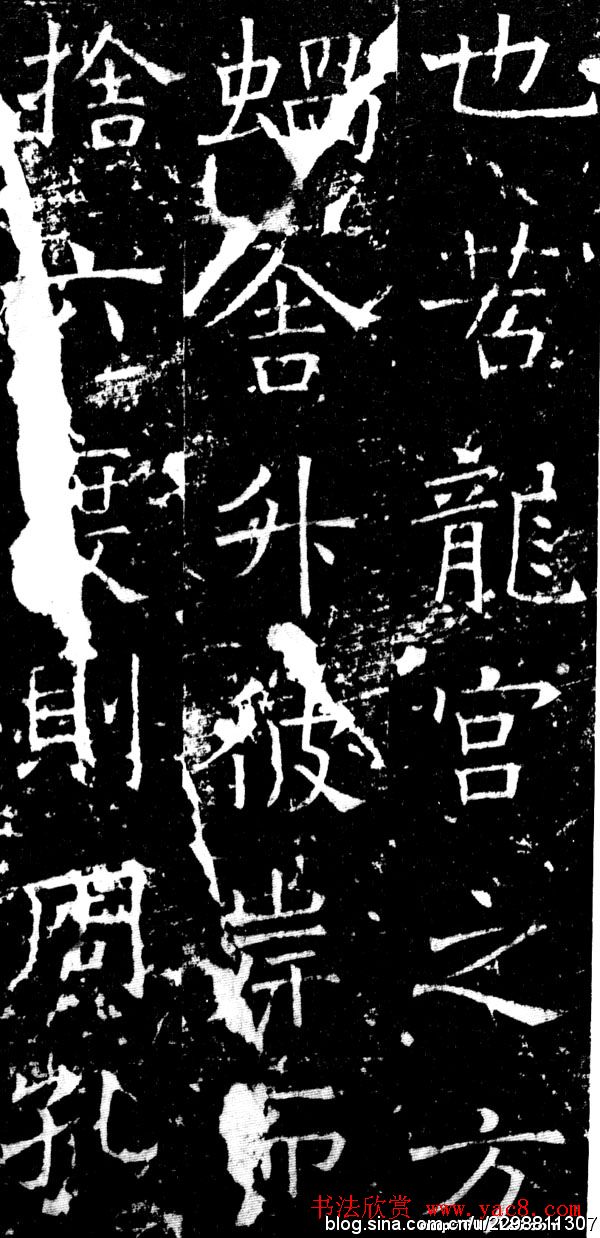 也若龍宮之方
蝸舍升彼岸而
捨六度則周孔
书法欣赏 www.yac8.com
blog.sina.com.cn/u/2298811307